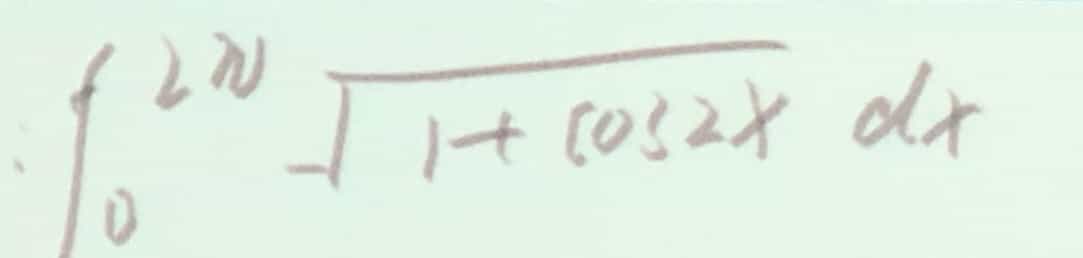 ∫₀^{2π} √(1+cos2x) dx